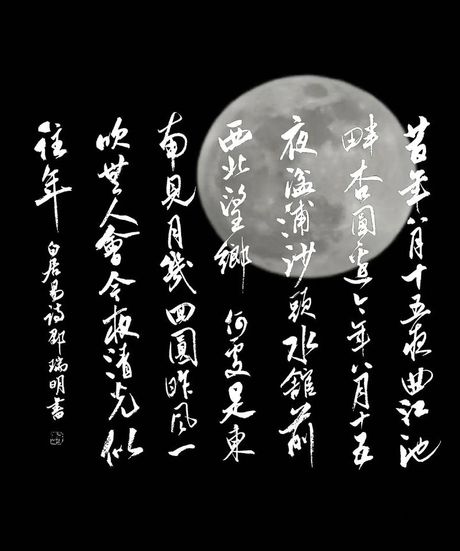 昔年八月十五夜曲江池
畔杏園邊今年八月十五
夜湓浦沙頭水館前
西北望鄉何處是東
南見月幾回圓昨風一
吹無人會今夜清光似
往年
白居易詩瑞明書